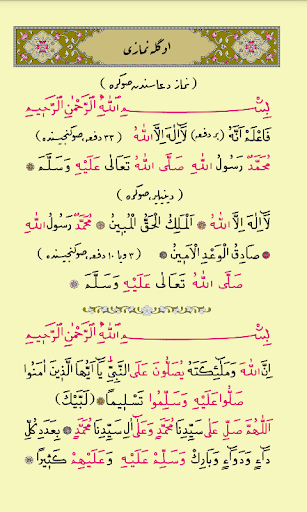 اوگله نمازی
( نماز دعاسندن صوکره )
بِسْمِ اللهِ الرَّحْمٰنِ الرَّحِيمِ
فَاعْلَمْ اَنَّهُ ( بر دفعه ) لَٓا اِلٰهَ اِلَّا اللهُ ( ٣٣ دفعه، صوکنجیسنده )
مُحَمَّدٌ رَسُولُ اللهِ صَلَّى اللهُ تَعَالٰى عَلَيْهِ وَسَلَّمَ ❁
( دینیلیر، صوکره )
لَٓا اِلٰهَ اِلَّا اللهُ ❁ اَلْمَلِكُ الْحَقُّ الْمُبِينُ ❁ مُحَمَّدٌ رَسُولُ اللهِ
❁ صَادِقُ الْوَعْدِ الْاَمِينُ ❁ ( ٣ ویا ١٠ دفعه، صوکنجیسنده )
صَلَّى اللهُ تَعَالٰى عَلَيْهِ وَسَلَّمَ ❁
بِسْمِ اللهِ الرَّحْمٰنِ الرَّحِيمِ
اِنَّ اللهَ وَمَلٰٓئِكَتَهُ يُصَلُّونَ عَلَى النَّبِىِّ يَٓا اَيُّهَا الَّذِينَ اٰمَنُوا
صَلُّوا عَلَيْهِ وَسَلِّمُوا تَسْلِيمًا ❁ ( لَبَّيْكَ )
اَللّٰهُمَّ صَلِّ عَلٰى سَيِّدِنَا مُحَمَّدٍ وَعَلٰٓى اٰلِ سَيِّدِنَا مُحَمَّدٍ ❁ بِعَدَدِ كُلِّ
دَٓاءٍ وَدَوَٓاءٍ وَبَارِكْ وَسَلِّمْ عَلَيْهِ وَعَلَيْهِمْ كَثِيرًا ❁